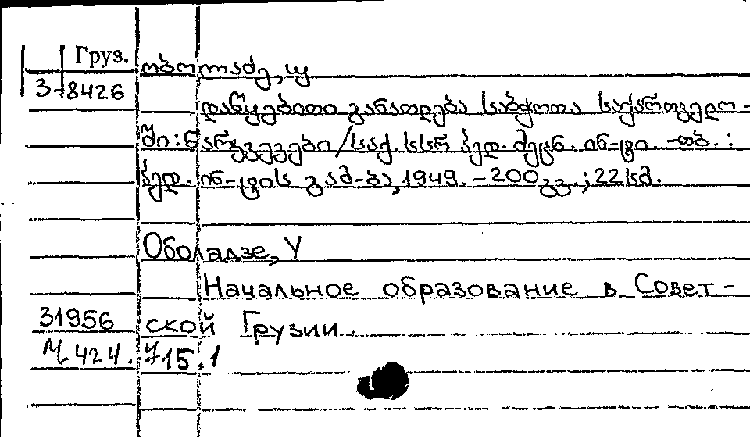 Груз.
3-8426
ობოლაძე, უ
დაწყებითი განათლება საბჭოთა საქართველო-
ში: ნარკვევები / საქ. სსრ პედ. მეცნ. ინ-ტი. -თბ. :
პედ. ინ-ტის გამ-ბა, 1949. - 200 გვ. ; 22 სმ.
Оболадзе, У
Начальное образование в Совет-
31956 ской Грузии.
715.1